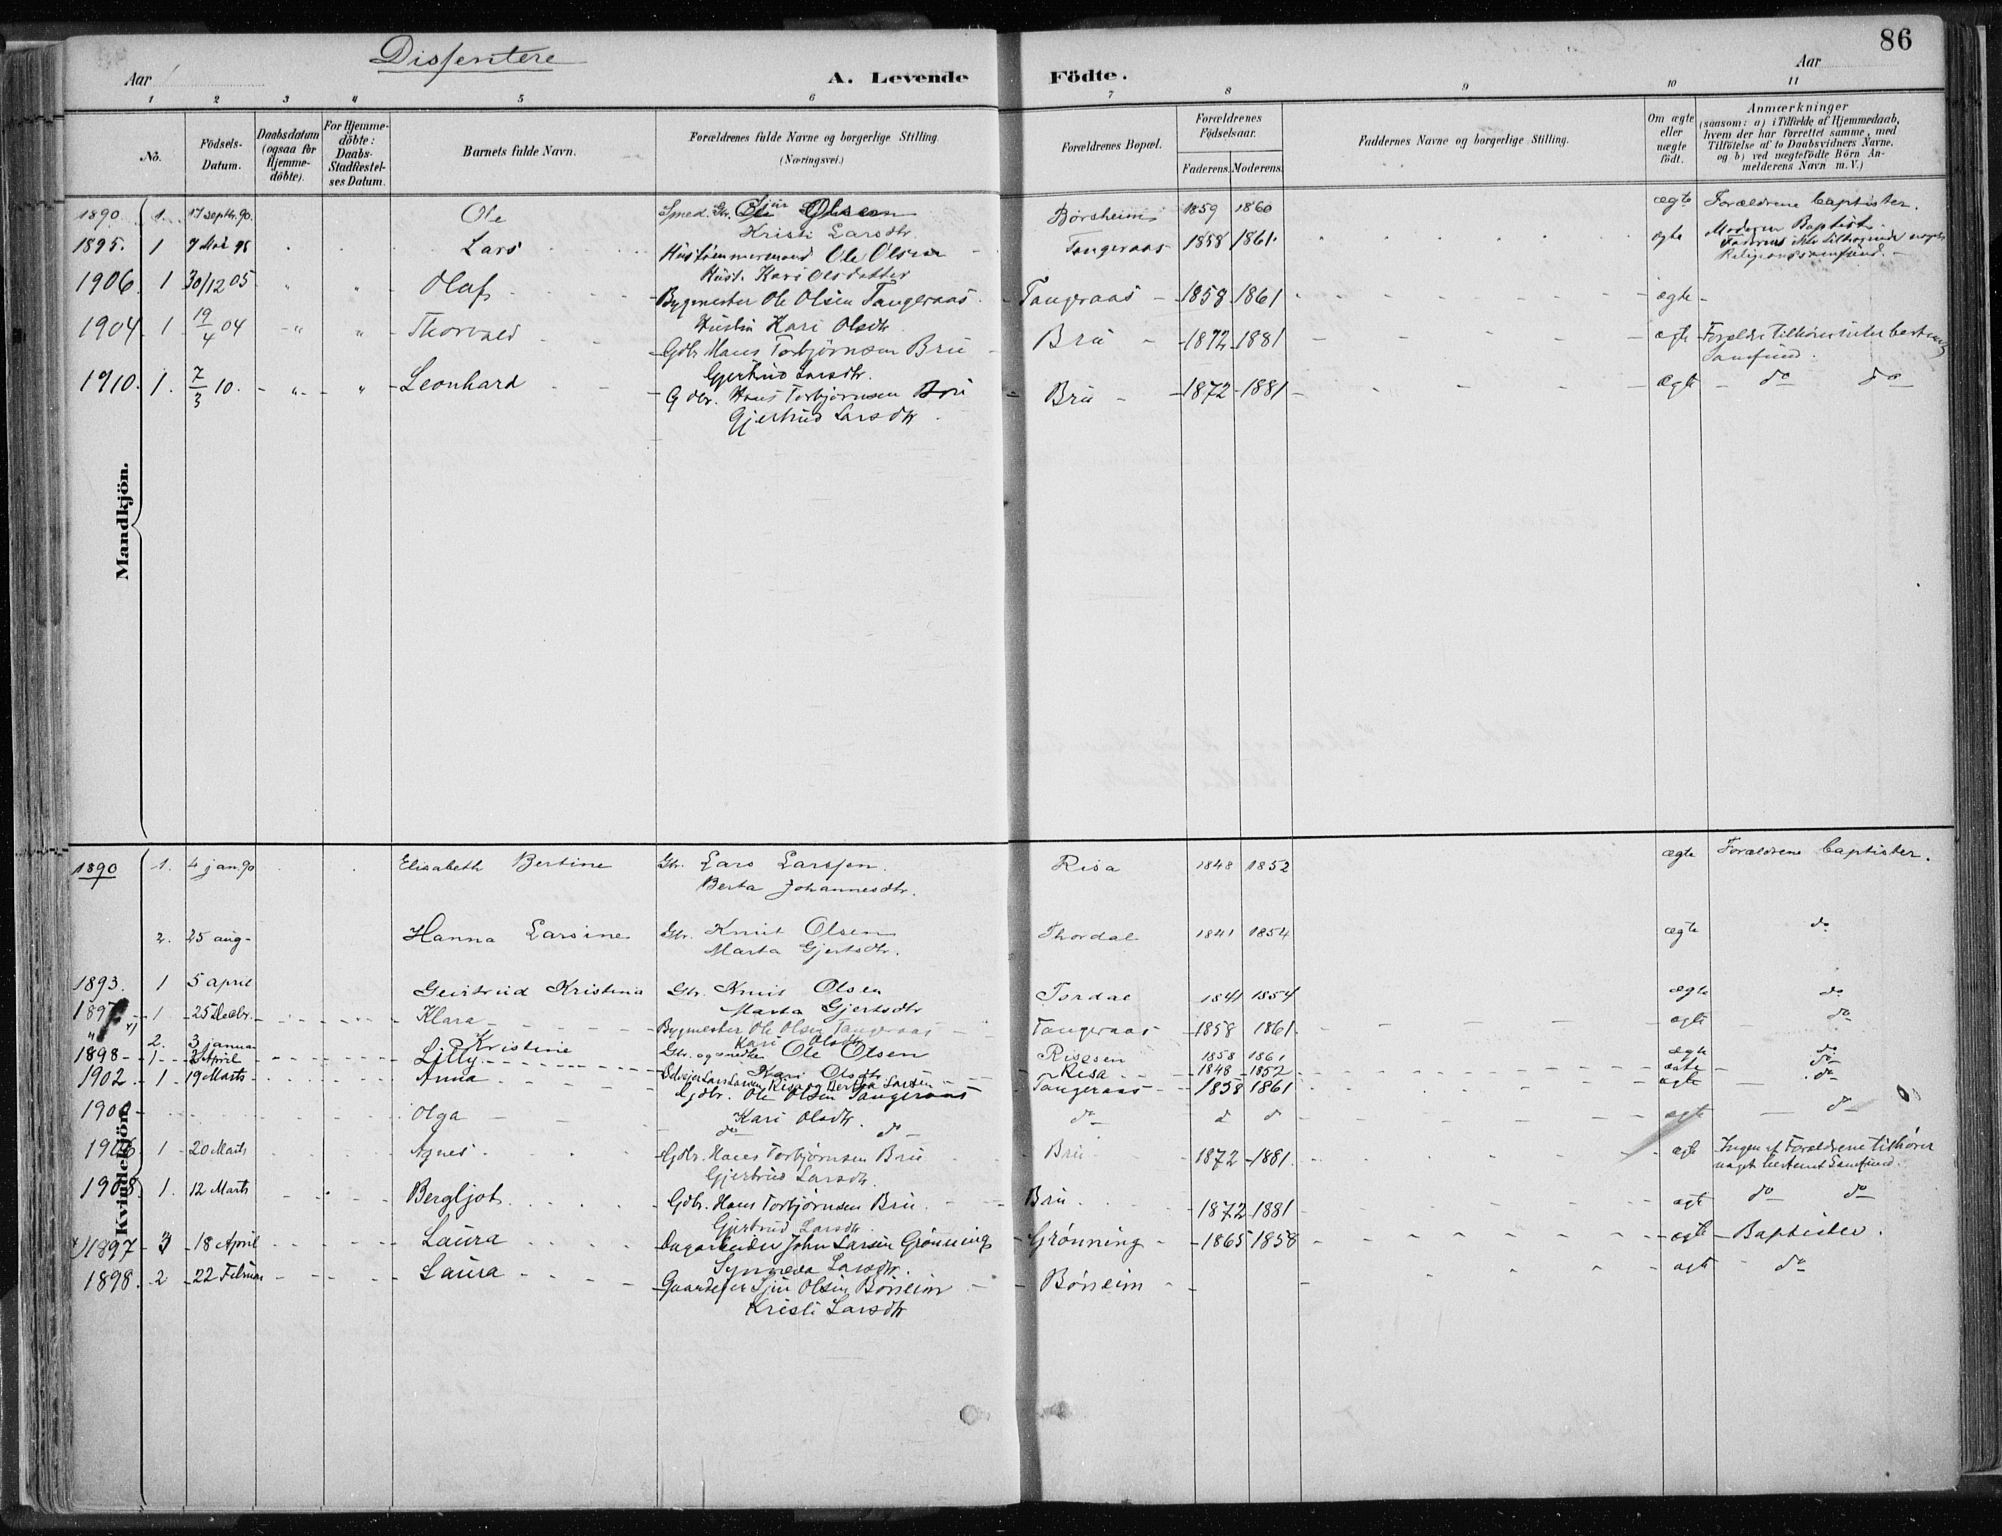 86
Dissentere
Aar
A. Levende Födte.
Aar
1 2 3 4 5 6 7 8 9 10 11
No.
Födsels-Datum.
Daabsdatum (ogsaa for Hjemme-döbte).
For Hjemme-döbte: Daabs-Stadfæstel-ses Datum.
Barnets fulde Navn.
Forældrenes fulde Navne og borgerlige Stilling.
(Næringsvei.)
Forældrenes Bopæl.
Forældrenes Födselsaar.
Faderens. Moderens.
Faddernes Navne og borgerlige Stilling.
Om ægte eller uægte födt.
Anmærkninger
(saasom: a) i Tilfælde af Hjemmedaab, hvem der har forrettet samme, med Tilföielse af to Daabsvidners Navne. og b) ved uægtefödte Börn An-melderens Navn m. V.)
Mandkjön.
1890. 1. 17 septbr. 90. Ole Smed. Gbr. Sjur Olsen Børsheim 1859 1860 ægte Forældrene baptister.
Kristi Larsdtr.
1895. 1 7 Mai 95 Lars Hustømmermand Ole Olsen Tangeraas 1858 1861 ægte Moderen Baptist.
Hust. Kari Olsdatter
1906 1 30/12 05 " " Olaf Bygmester Ole Olsen Tangeraas Tangeraas 1858 1861 ægte
Hustru Kari Olsdtr.
1904 1 19/4 04 " " Thorvald Gdbr. Hans Torbjørnsen Bru Bru 1872 1881 ægte
Samfund.
Gjertrud Larsdtr.
1910. 1. 7/3 10. " " Leonhard Gdbr. Hans Torbjørnsen Bru Bru 1872 1881 Ægte do do
Gjertrud Larsdtr.
Kvindekjön.
1890 1. 4 jan. 90 Elisabeth Bertine Gbr. Lars Larssen Risa 1848 1852 ægte Forældrene baptister.
Berta Johannesdtr.
2. 25 aug. Hanna Larsine Gbr. Knut Olsen Thordal 1841 1854 ægte do
Marta Gjertsdtr.
1893. 1 5 april Geirtrud Kristina Gbr. Knut Olsen Tordal 1841 1854 ægte do
Marta Gjertsdtr
1 25 Decbr. Klara Bygmester Ole Olsen Tangeraas Tangeraas 1858 1861 ægte do
Kari Olsdtr
2. 3 januar Kristine Ole Olsen 1858 1861 ægte do
Kari Olsdtr
1898 1 2 April Lilly Lars Larsen Risa og Bertha Larsen Risa 1848 1852 ægte do
1902 1 19 Marts Anna Gdbr. Ole Olsen Tangeraas Tangeraas 1858 1861 ægte do
Kari Olsdtr.
Olga do do do d d ægte do
1906 1 20 Marts Agnes Gdbr. Hans Torbjørnsen Bru Bru 1872 1881. ægte Ingen af Forældrene tilhører
Gjertrud Larsdtr. noget bestemt Samfund.
1908 1. 12 Marts Bergljot Gdbr. Hans Torbjørnsen Bru Bru 1872 1881 ægte do do
Gjertrud Larsdtr.
1897 3 18 April Laura Dagarbeider John Larsen Grønning Grønning 1865 1858 ægte Baptister.
Synneva Larsdtr.
1898. 2 22 Februar Laura Gaardejer Sjur Olsen Børseim Børseim ægte do
Kristi Larsdtr